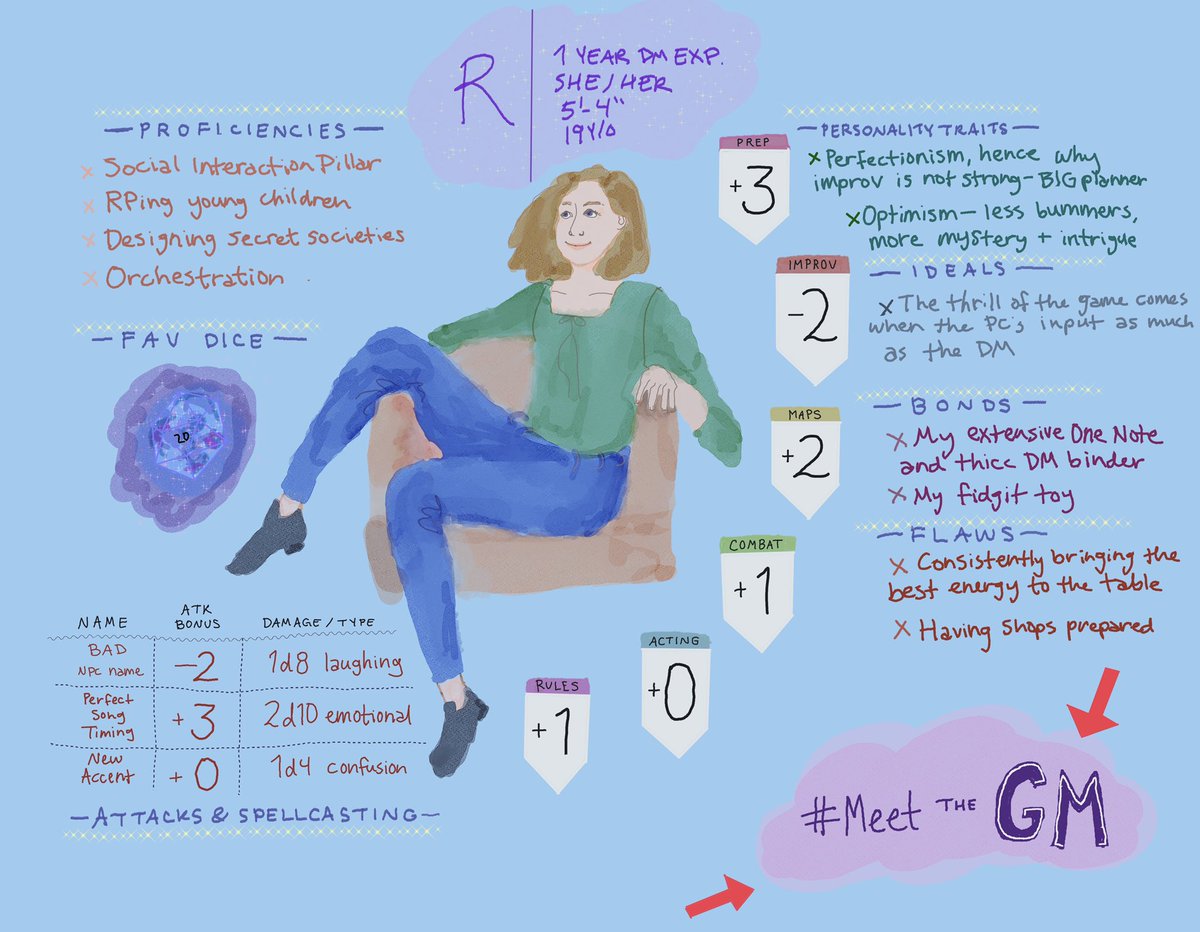 R
1 YEAR DM EXP.
SHE/HER
5'-4"
19Y/O
—PROFICIENCIES—
x Social Interaction Pillar
x RPing young children
x Designing secret societies
x Orchestration
—FAV DICE—
20
NAME ATK BONUS DAMAGE/TYPE
BAD NPC name -2 1d8 laughing
Perfect Song Timing +3 2d10 emotional
New Accent +0 1d4 confusion
—ATTACKS & SPELLCASTING—
PREP
+3
IMPROV
-2
MAPS
+2
COMBAT
+1
ACTING
+0
RULES
+1
—PERSONALITY TRAITS—
x Perfectionism, hence why
improv is not strong - BIG planner
x Optimism - less bummers,
more mystery + intrigue
—IDEALS—
x The thrill of the game comes
when the PC's input as much
as the DM
—BONDS—
x My extensive One Note
and thicc DM binder
x My fidgit toy
—FLAWS—
x Consistently bringing the
best energy to the table
x Having shops prepared
#Meet THE GM